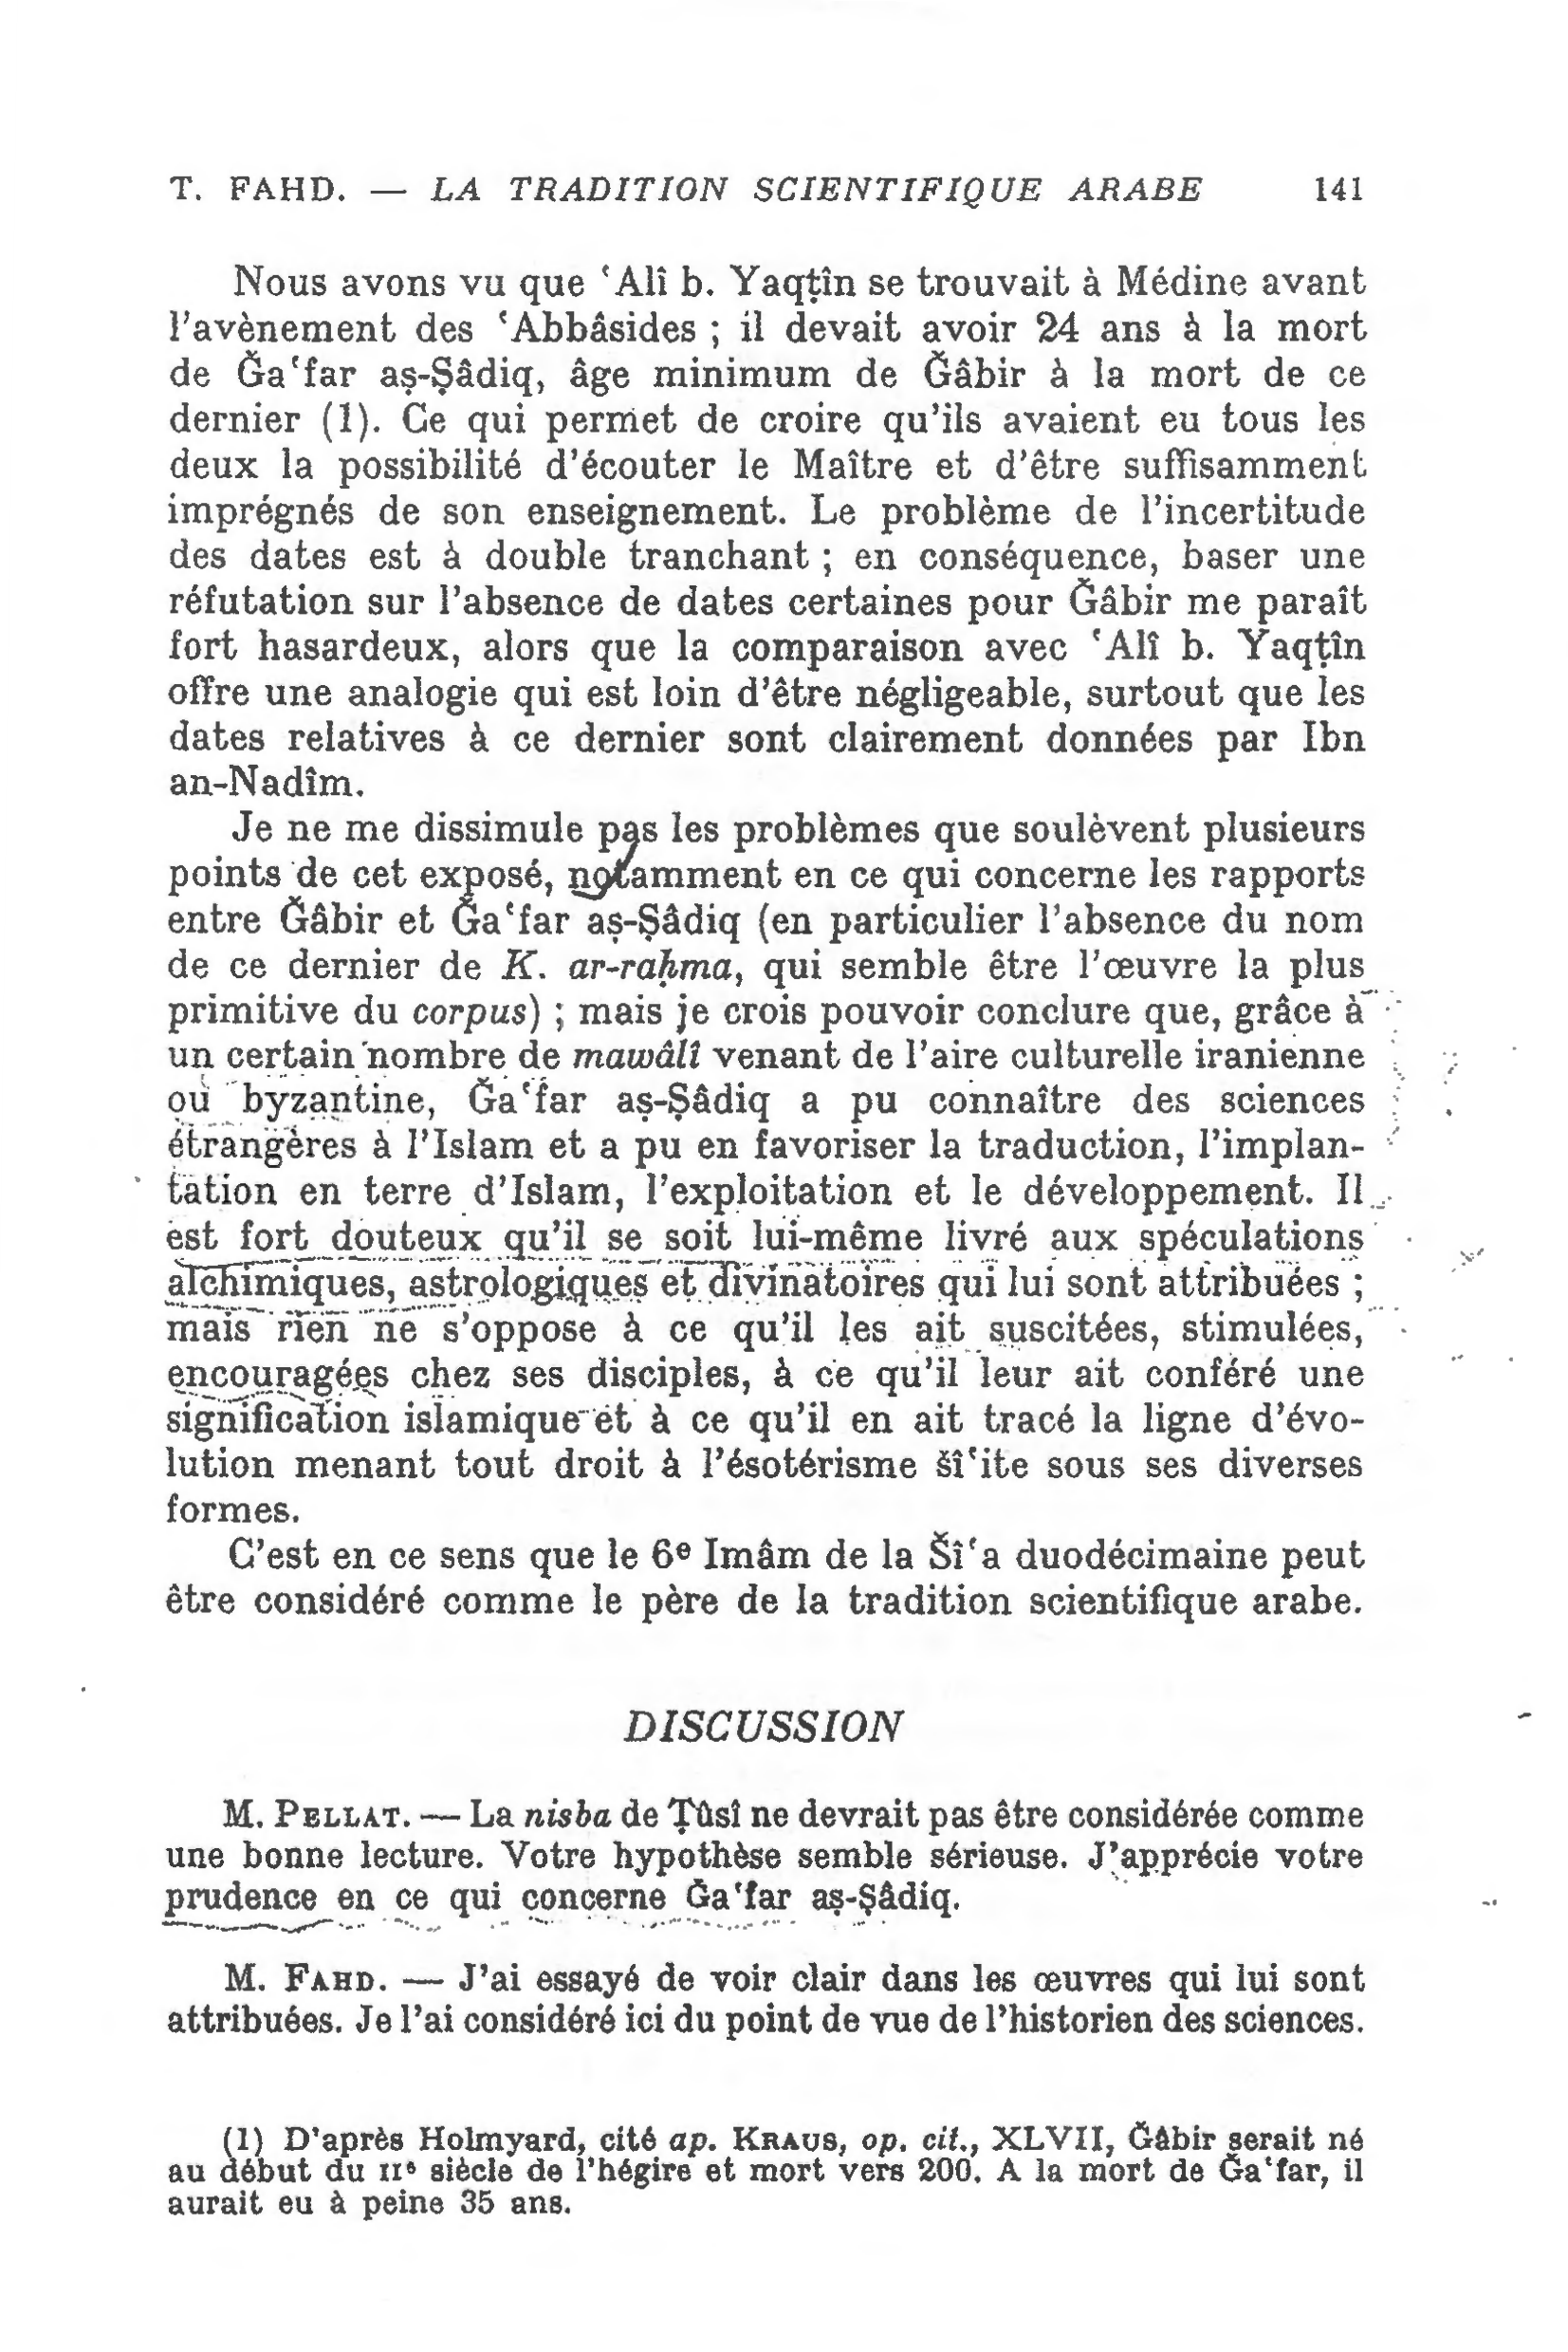 T. FAHD. — LA TRADITION SCIENTIFIQUE ARABE 141
Nous avons vu que ʿAlî b. Yaqṭîn se trouvait à Médine avant
l'avènement des ʿAbbâsides ; il devait avoir 24 ans à la mort
de Ǧaʿfar aṣ-Ṣâdiq, âge minimum de Ǧâbir à la mort de ce
dernier (1). Ce qui permet de croire qu'ils avaient eu tous les
deux la possibilité d'écouter le Maître et d'être suffisamment
imprégnés de son enseignement. Le problème de l'incertitude
des dates est à double tranchant ; en conséquence, baser une
réfutation sur l'absence de dates certaines pour Ǧâbir me paraît
fort hasardeux, alors que la comparaison avec ʿAlî b. Yaqṭîn
offre une analogie qui est loin d'être négligeable, surtout que les
dates relatives à ce dernier sont clairement données par Ibn
an-Nadîm.
Je ne me dissimule pas les problèmes que soulèvent plusieurs
points de cet exposé, notamment en ce qui concerne les rapports
entre Ǧâbir et Ǧaʿfar aṣ-Ṣâdiq (en particulier l'absence du nom
de ce dernier de K. ar-raḥma, qui semble être l'œuvre la plus
primitive du corpus) ; mais je crois pouvoir conclure que, grâce à
un certain nombre de mawâlî venant de l'aire culturelle iranienne
ou byzantine, Ǧaʿfar aṣ-Ṣâdiq a pu connaître des sciences
étrangères à l'Islam et a pu en favoriser la traduction, l'implan-
tation en terre d'Islam, l'exploitation et le développement. Il
est fort douteux qu'il se soit lui-même livré aux spéculations
alchimiques, astrologiques et divinatoires qui lui sont attribuées ;
mais rien ne s'oppose à ce qu'il les ait suscitées, stimulées,
encouragées chez ses disciples, à ce qu'il leur ait conféré une
signification islamique et à ce qu'il en ait tracé la ligne d'évo-
lution menant tout droit à l'ésotérisme šîʿite sous ses diverses
formes.
C'est en ce sens que le 6e Imâm de la Šîʿa duodécimaine peut
être considéré comme le père de la tradition scientifique arabe.
DISCUSSION
M. PELLAT. — La nisba de Ṭûsî ne devrait pas être considérée comme
une bonne lecture. Votre hypothèse semble sérieuse. J'apprécie votre
prudence en ce qui concerne Ǧaʿfar aṣ-Ṣâdiq.
M. FAHD. — J'ai essayé de voir clair dans les œuvres qui lui sont
attribuées. Je l'ai considéré ici du point de vue de l'historien des sciences.
(1) D'après Holmyard, cité ap. KRAUS, op. cit., XLVII, Ǧâbir serait né
au début du IIe siècle de l'hégire et mort vers 200. A la mort de Ǧaʿfar, il
aurait eu à peine 35 ans.